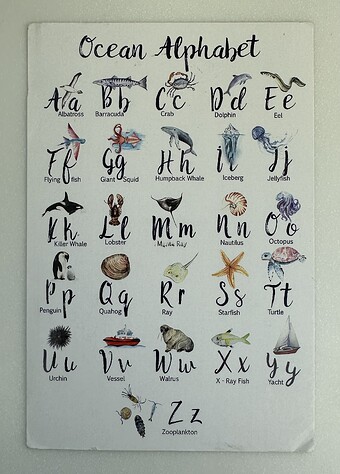 Ocean Alphabet
Aa Bb Cc Dd Ee
Albatross Barracuda Crab Dolphin Eel
Ff Gg Hh Ii Jj
Flying fish Giant Squid Humpback Whale Iceberg Jellyfish
Kk Ll Mm Nn Oo
Killer Whale Lobster Manta Ray Nautilus Octopus
Pp Qq Rr Ss Tt
Penguin Quahog Ray Starfish Turtle
Uu Vv Ww Xx Yy
Urchin Vessel Walrus X - Ray Fish Yacht
Zz
Zooplankton